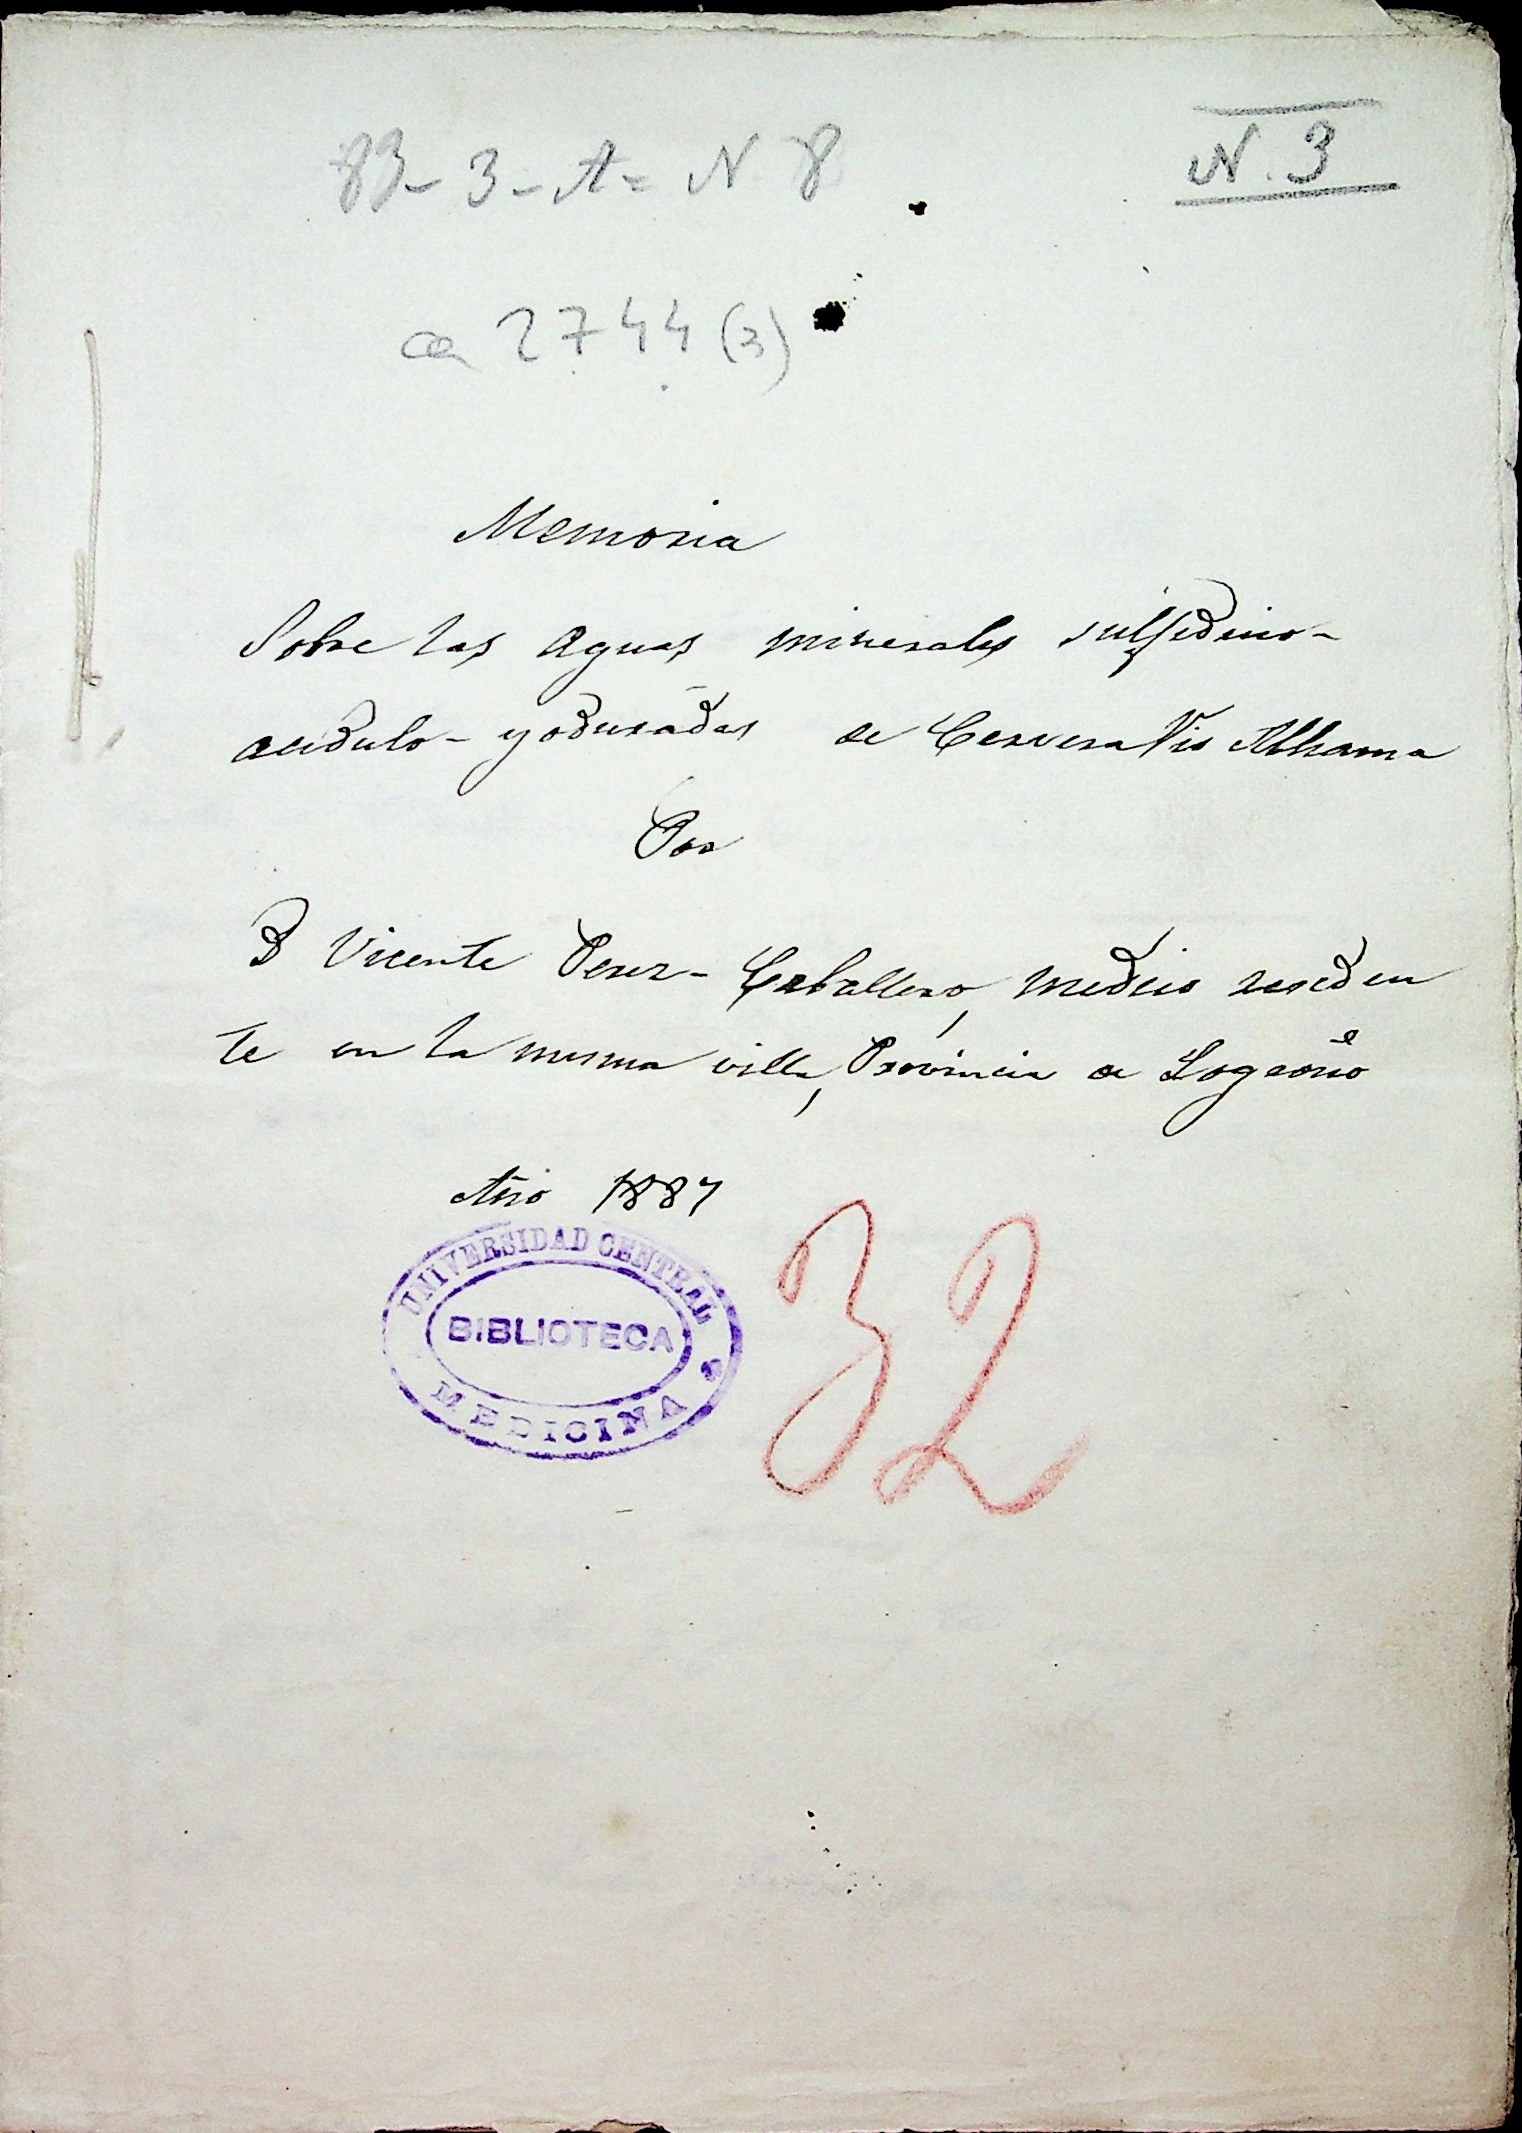 83-3-A= N. 8
N. 3
ca 2744 (3)
Memoria
Sobre las Aguas minerales sulfidrico-
acidulo-yoduradas de Cervera Rio Alhama
Por
D Vicente Perez-Caballero, medico residen
te en la misma villa, Provincia de Logroño
Año 1887
UNIVERSIDAD CENTRAL
BIBLIOTECA
MEDICINA
32